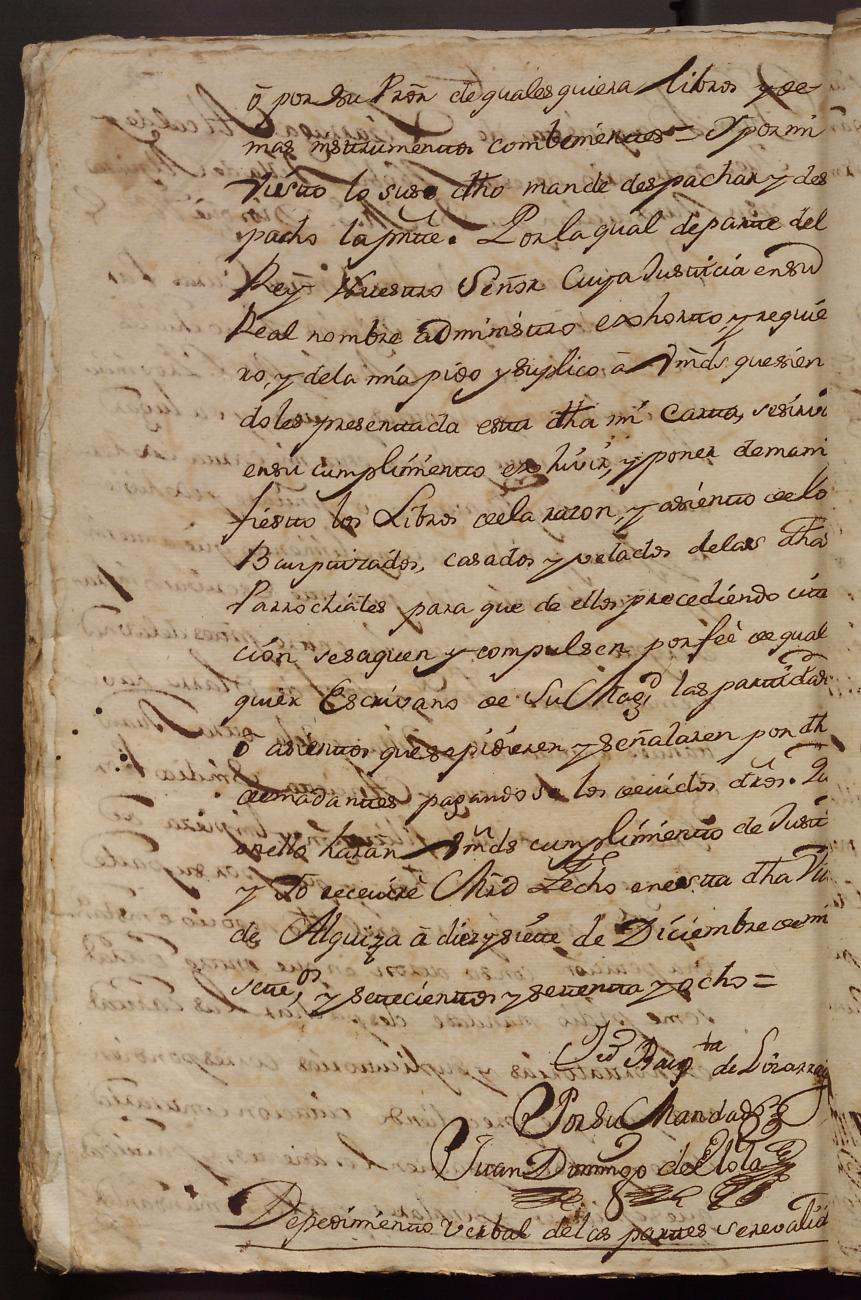 ō por su Prōr de quales quiera Libros y de-
mas instrumentos combenientes = Y por mi
visto lo suso dho mande despachar y des
pacho la prṇte. Por la qual de parte del
Rey Nuestro Señor Cuya Justicia en su
Real nombre administro exhorto, y requie
ro, y de la mia pido y suplico â Vm̃ds que sien
doles presentada esta dha mi Carta, se sirvi
en su cumplimiento exhivir, y poner de mani
fiesto los Libros de la razon, y asiento de lo
Bauptizados, casados y velados de las dhas
Parrochiales para que de ellos precediendo cita
ción se saquen y compulsen por feè de qual
quier Escrivano de Su Magd las partidas
ô asientos que se pidieren y señalaren por dh
demandantes pagando se los devidos drōs. Qu
en ello haran Vm̃ds cumplimiento de Justi
y Yo recevire Mrd Fecho en esta dha Vi
de Alquiza â diez y siete de Diciembre de mi
sete,os y setecientos y setenta y ocho =
Jph Baupta de Lizarra
Por su Mandado
Juan Domingo de Elola
De pedimento verbal de las partes se revalid